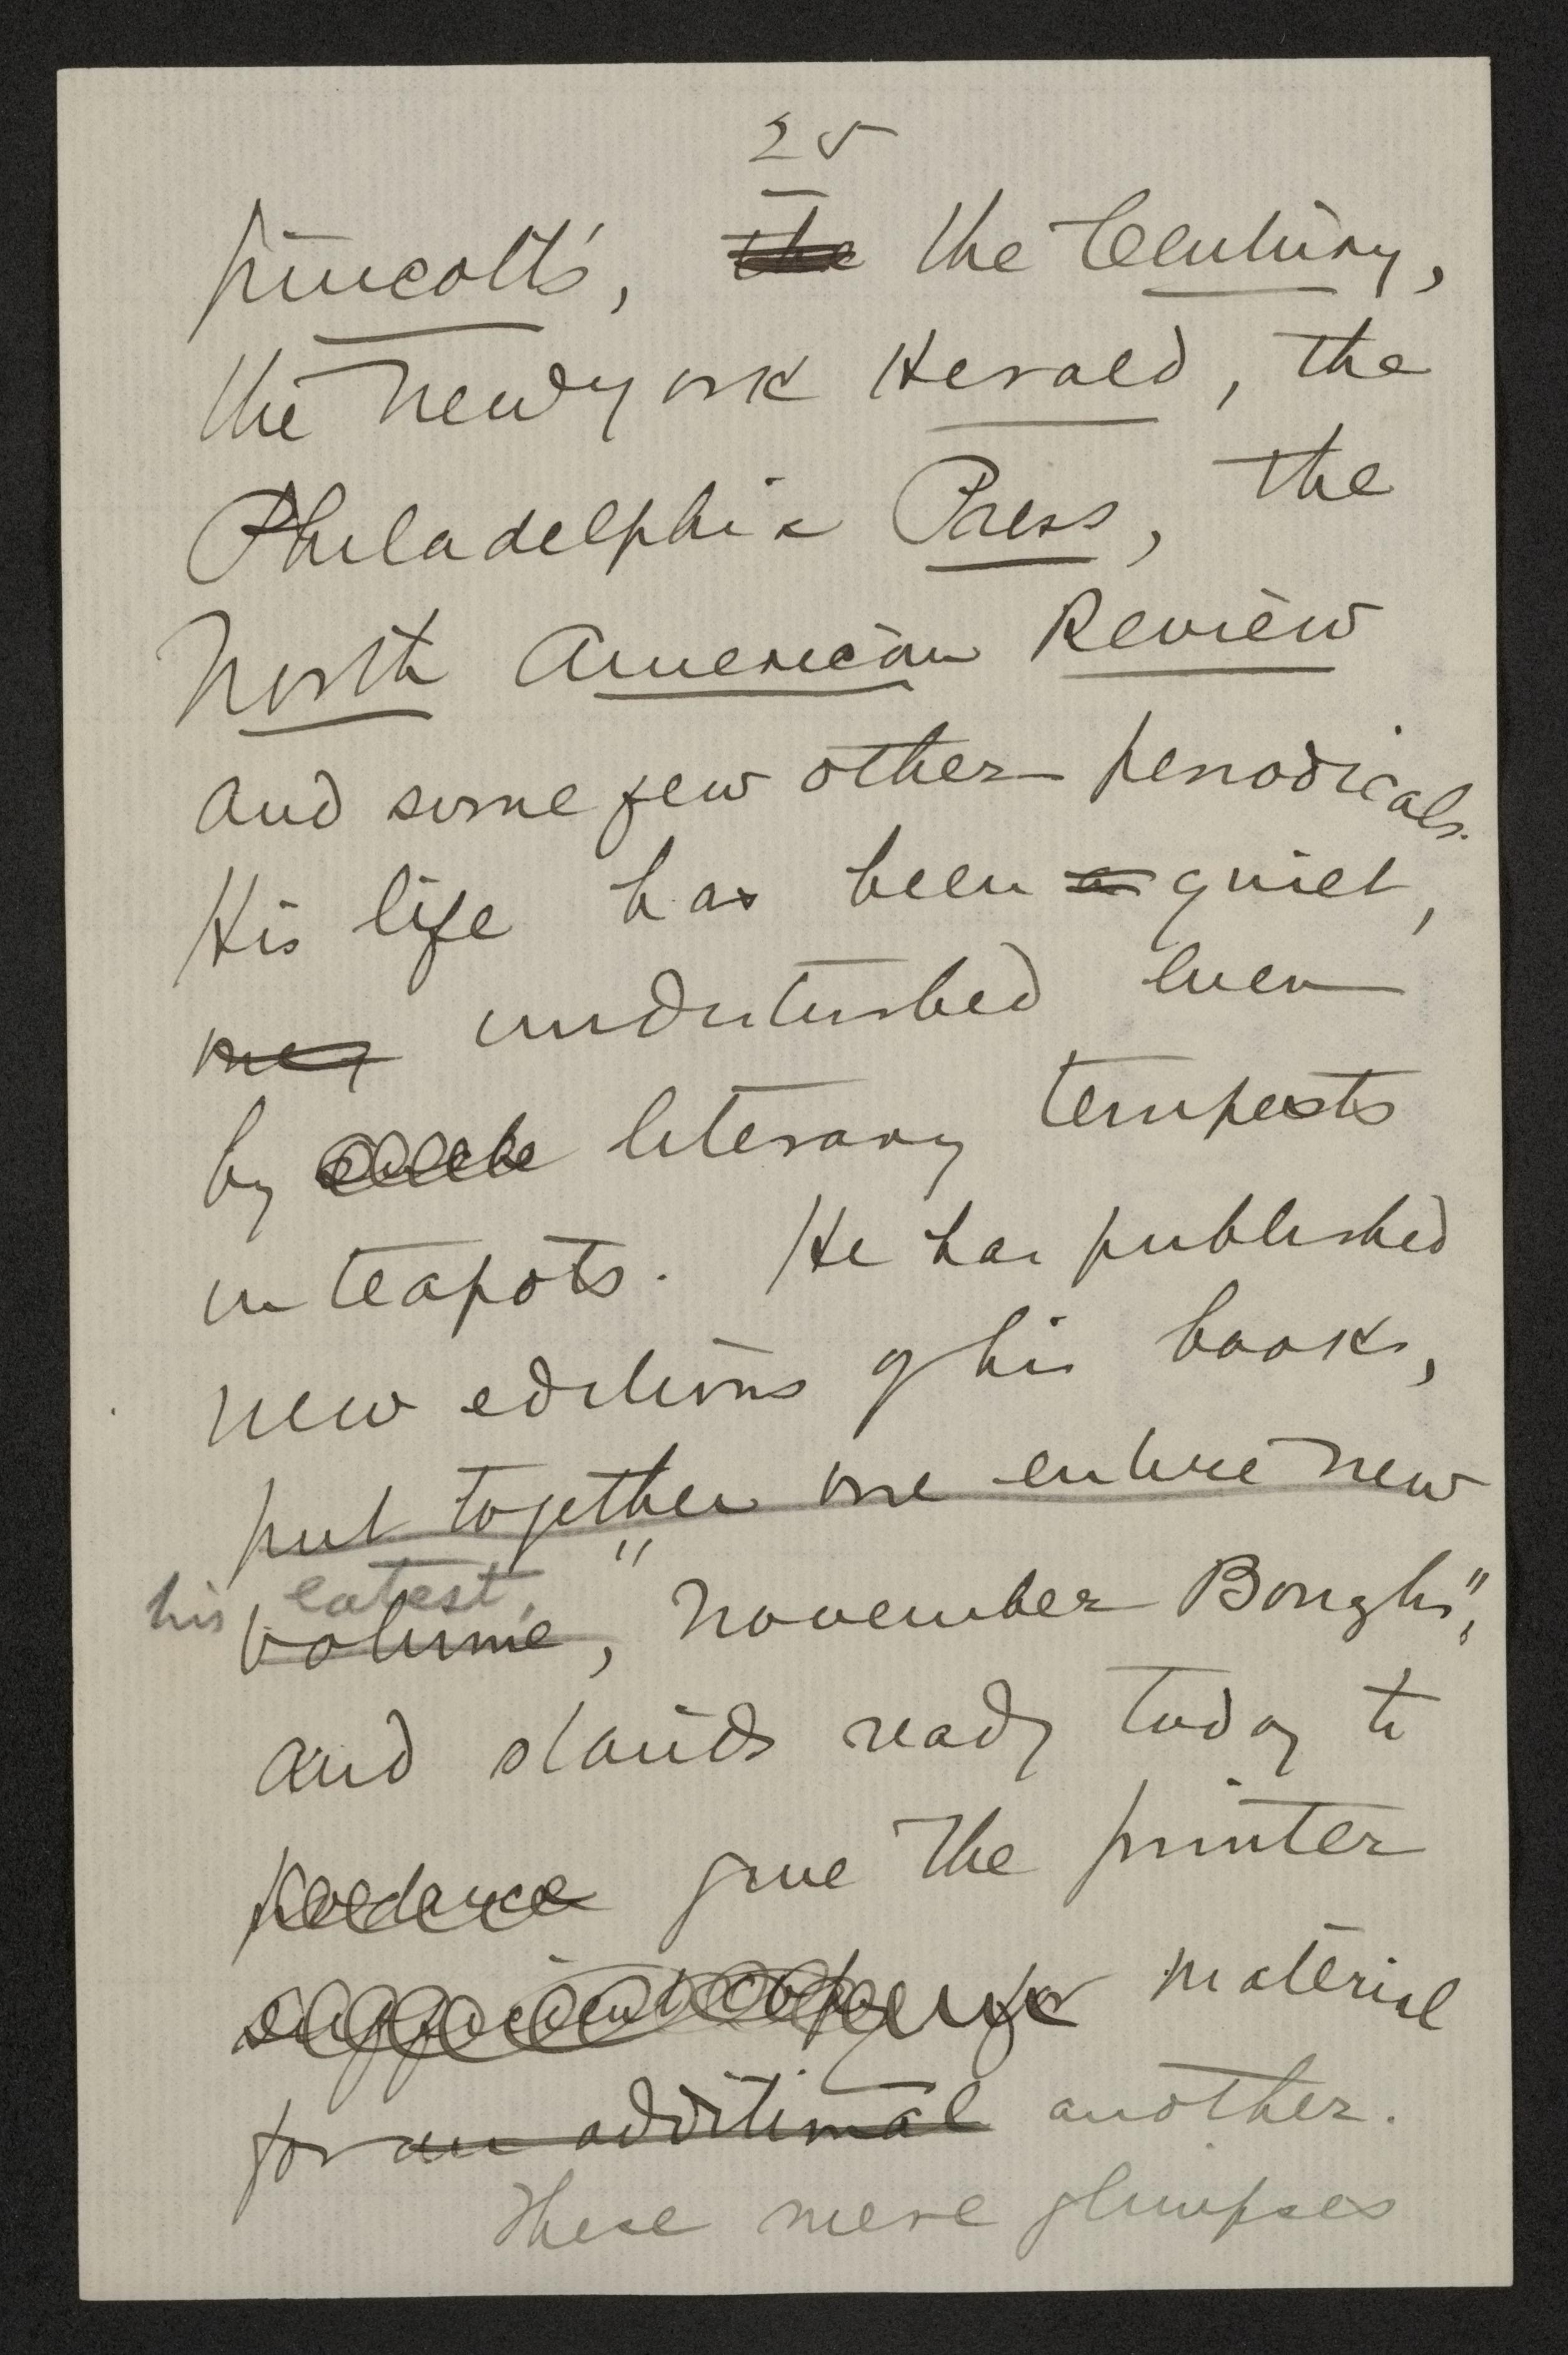 25
pincott's, the the Century,
the New York Herald, the
Philadelphia Press, the
North American Review
and some few other periodicals.
His life has been a quiet,
undisturbed even
by literary tempests
in teapots. He has published
new editions of his books,
put together one entire new
his latest,
volume, "November Boughs",
and stands ready today to
give the printer
sufficient copy material
for an additional another.
These mere glimpses